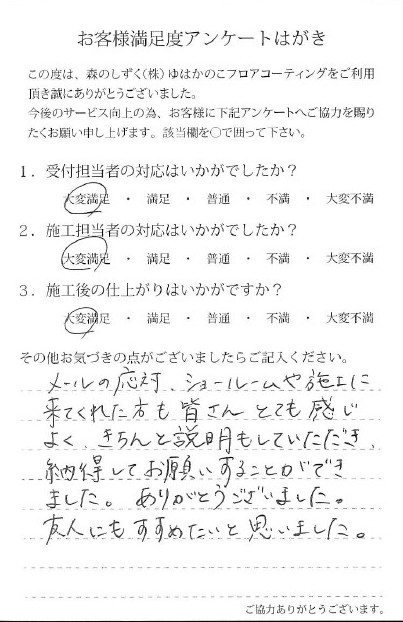 お客様満足度アンケートはがき
この度は、森のしずく(株)ゆはかのこフロアコーティングをご利用
頂き誠にありがとうございました。
今後のサービス向上の為、お客様に下記アンケートへご協力を賜り
たくお願い申し上げます。該当欄を○で囲って下さい。
1．受付担当者の対応はいかがでしたか？
大変満足 ・ 満足 ・ 普通 ・ 不満 ・ 大変不満
2．施工担当者の対応はいかがでしたか？
大変満足 ・ 満足 ・ 普通 ・ 不満 ・ 大変不満
3．施工後の仕上がりはいかがですか？
大変満足 ・ 満足 ・ 普通 ・ 不満 ・ 大変不満
その他お気づきの点がございましたらご記入ください。
メールの応対、ショールームや施工に
来てくれた方も皆さん とても感じ
よく、きちんと説明もしていただき、
納得してお願いすることができ
ました。 ありがとうございました。
友人にもすすめたいと思いました。
ご協力ありがとうございます。